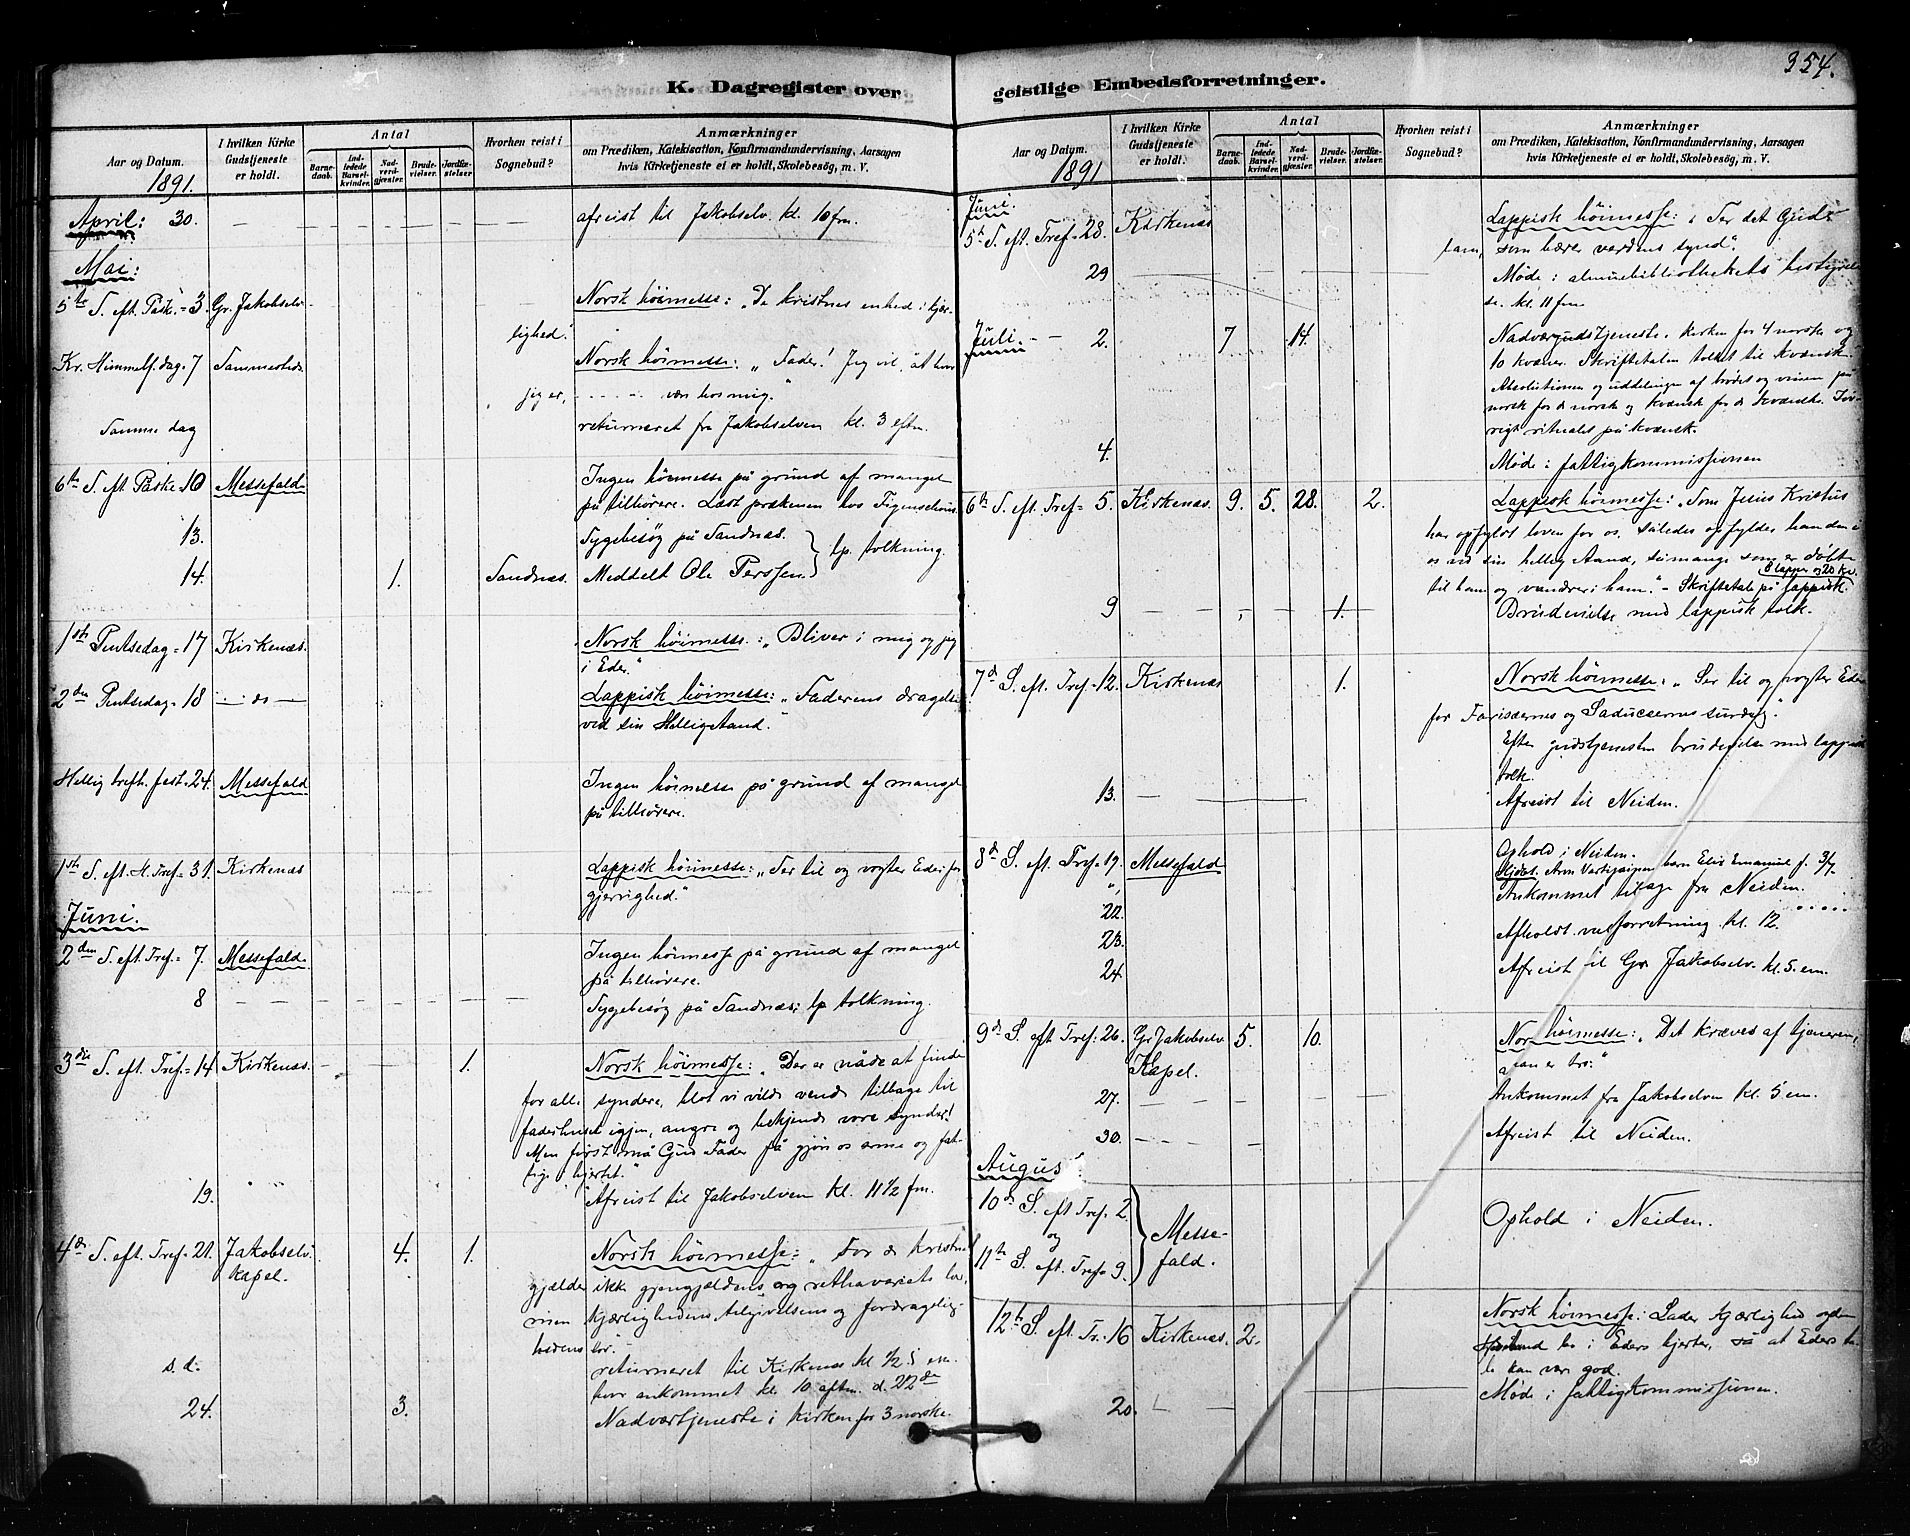 K. Dagregister over
Aar og Datum. 1891.
I hvilken Kirke Gudstjeneste er holdt.
Antal
Barnedaab. Indledede Barselkvinder. Nadverdgjæster. Brudevielser. Jordfæstelser.
Hvorhen reist i Sognebud?
Anmærkninger
om Prædiken, Katekisation, Konfirmandundervisning, Aarsagen
hvis Kirketjeneste ei er holdt, Skolebesög, m. V.
April: 30. afreist til Jakobselv. kl. 10 fm.
Mai:
5te S. eft. Påske = 3. Gr. Jakobselv Norsk höimesse: „De kristnes enhed i kjær-
lighed."
Kr. Himmelf. dag = 7 Sammesteds Norsk höimesse: „Fader! Jeg vil, at hvor
jeg er, - - - - - være hos mig."
Samme dag returneret fra Jakobselven kl. 3 eftm.
6te S. eft. Påske 10 Messefald Ingen höimesse på grund af mangel
på tilhörere. Læst prækenen hos
13. Sygebesög på Sandnæs.
14. 1. Sandnæs. Meddelt Ole Perssen. } lp. tolkning.
1ste Pintsedag = 17 Kirkenæs. Norsk höimesse: „Bliver i mig og jeg
i Eder."
2den Pintsedag = 18 — do — Lappisk höimesse: „Faderens dragelse
ved sin Helligaand."
Hellig trefh. fest = 24. Messefald Ingen höimesse på grund af mangel
på tilhörere.
1ste S. eft. H. Tref = 31. Kirkenæs Lappisk höimesse: „Ser til og vogter Eder for
gjerrighed."
Juni.
2den S. eft. Tref. = 7. Messefald. Ingen höimesse på grund af mangel
på tilhörere.
8 Sygebesög på Sandnæs; lp tolkning.
3die S. eft. Tref = 14 Kirkenæs. 1. Norsk höimesse: „Der er nåde at finde
for alle syndere, blot vi vilde vende tilbage til
faderhuset igjen, angre og bekjende vore synder!
Men först må Gud Fader få gjöre os arme og fat-
tige i hjertet."
19. Afreist til Jakobselven kl. 11 1/2 fm.
4de S. eft. Tref = 21. Jakobselv. kapel. 4. 1. Norsk höimesse: „For de kristne
gjælder ikke gjengjældens og rethaveriets lov,
men kjærlighedens, tilgivelsens og fordragelig-
hedens lov."
s. d. returneret til Kirkenæs kl 1/2 5 em.
hvor ankommet kl. 10 aften d. 22de
24. 3. Nadværtjeneste i Kirken for 3 norske.
354.
geistlige Embedsforretninger.
Aar og Datum. 1891
I hvilken Kirke Gudstjeneste er holdt.
Antal
Barnedaab. Indledede Barselkvinder. Nadverdgjæster. Brudevielser. Jordfæstelser.
Hvorhen reist i Sognebud?
Anmærkninger
om Prædiken, Katekisation, Konfirmandundervisning, Aarsagen
hvis Kirketjeneste ei er holdt, Skolebesög, m. V.
Juni.
5te S. eft. Tref = 28. Kirkenæs Lappisk höimesse: „Ser det Guds
lam, som bærer verdens synd".
29 Möde i almuebibliothekets bestyrel-
se. kl. 11 fm
Juli. — 2. 7 14. Nadværgudstjeneste i kirken for 4 norske og
10 kvæner. Skriftetalen tolket til kvænsk.
Absolutionen og uddelingen af brödet og vinen på
norsk for de norske og kvænsk for de kvænske. Töv-
rigt ritualet på kvænsk.
4. Möde i fattigkommissionen
6te S. eft. Tref = 5. Kirkenæs. 9. 5. 28. 2. Lappisk höimesse: „Som Jesus Kristus
har opfyldt loven for os, således opfylder han den i
os ved sin hellig Aand, såmange som er döbte
til ham og vandrer i ham." - Skriftetale på lappisk.
8 lapper og 20 kv.
9 1. Brudevielse med lappisk tolk.
7de S. eft. Tref = 12. Kirkenæs 1. Norsk höimesse: „Ser til og vogter Eder
for Farisæernes og Saducæernes surdeig."
Efter gudstjenesten brudevielse med lappisk
tolk.
13. Afreist til Neiden.
8de S. eft. Tref = 19. Messefald Ophold i Neiden.
„ barn Elis Emanuel f. 3/7
22. Ankommet tilbage fra Neiden.
23. Afholdt valgforretning kl. 12.
24. Afreist til Gr. Jakobselv. kl. 5. em.
9de S. eft Tref: 26. Gr. Jakobselv. Kapel. 5. 10. Norsk höimesse: „Det kræves af tjeneren,
at han er tro."
27. Ankommet fra Jakobselven kl. 5 em.
30. Afreist til Neiden.
August.
10de S. eft Tref: 2.
og
11te S. eft. Tref = 9. } Messe-
fald. Ophold i Neiden.
12te S. eft. Tr. = 16 Kirkenæs. 2. Norsk höimesse: Lader kjærlighed og den
Helligaand bo i Eders hjerter, så at Eders ta-
le kan være god.
20. Möde i fattigkommissionen.